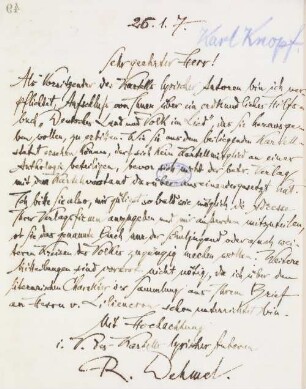 26.1.7.
Karl Knopf.
Sehr geehrter Herr!
Als Vorsitzender des Kartells lyrischer Autoren bin ich ver-
pflichtet, Aufschluß von Ihnen über ein
buch, Deutsches Land und Volk im Lied, das Sie herausgeben
wollen, zu erbitten. Wie Sie aus dem beiliegenden Kartell-
statut ersehen können, darf sich kein Kartellmitglied an einer
Anthologie beteiligen, bevor sich nicht der betr. Verlag
mit dem Kartellvorstand darüber auseinandergesetzt hat.
Ich bitte Sie also, mir so bald wie möglich die Adresse
Ihrer Verlagsfirma anzugeben und mir außerdem mitzuteilen,
ob Sie das genannte Buch nur der Schuljugend oder auch wei-
teren Kreisen des Volkes zugängig machen wollen. Weitere
Mitteilungen sind vorerst nicht nötig, da ich über den
litterarischen Charakter der Sammlung aus Ihrem Brief
an Herrn v. Liliencron schon unterrichtet bin.
Mit Hochachtung
i. V. des Kartells lyrischer Autoren
R. Dehmel.